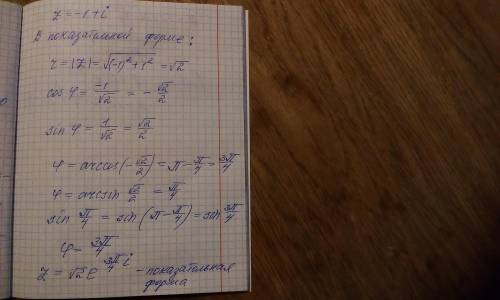 z = -1 + i
В показательной форме:
r = |z| = √((-1)² + 1²) = √2
cos φ = -1/√2 = - √2/2
sin φ = 1/√2 = √2/2
φ = arccos(-√2/2) = π - π/4 = 3π/4
φ = arcsin √2/2 = π/4
sin π/4 = sin(π - π/4) = sin 3π/4
φ = 3π/4
z = √2 e^(3π/4 i) - показательная
форма